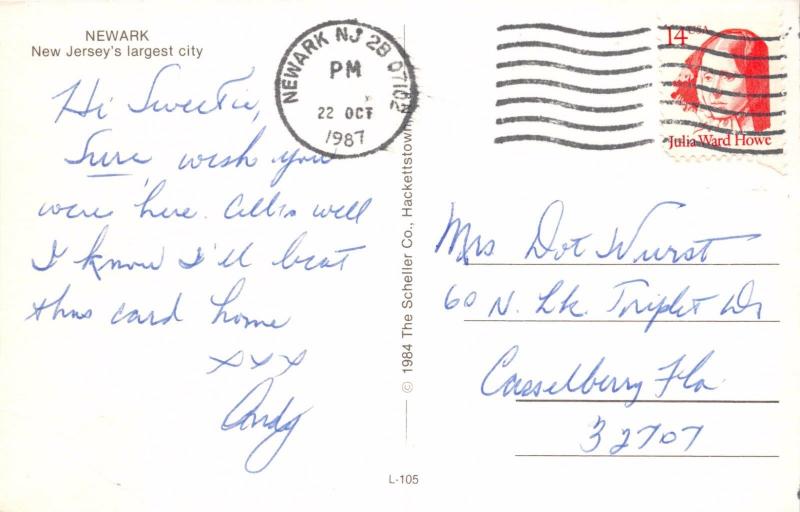 NEWARK
New Jersey's largest city
Hi Sweetie,
Sure, wish you
were here. All is well
I know I'll beat
this card home
xxx
Andy
NEWARK NJ 2B 07102
PM
22 OCT
1987
14 USA
Julia Ward Howe
© 1984 The Scheller Co., Hackettstown
Mrs Dot Wurst
60 N. Lk. Triplet Dr
Casselberry Fla
32707
L-105